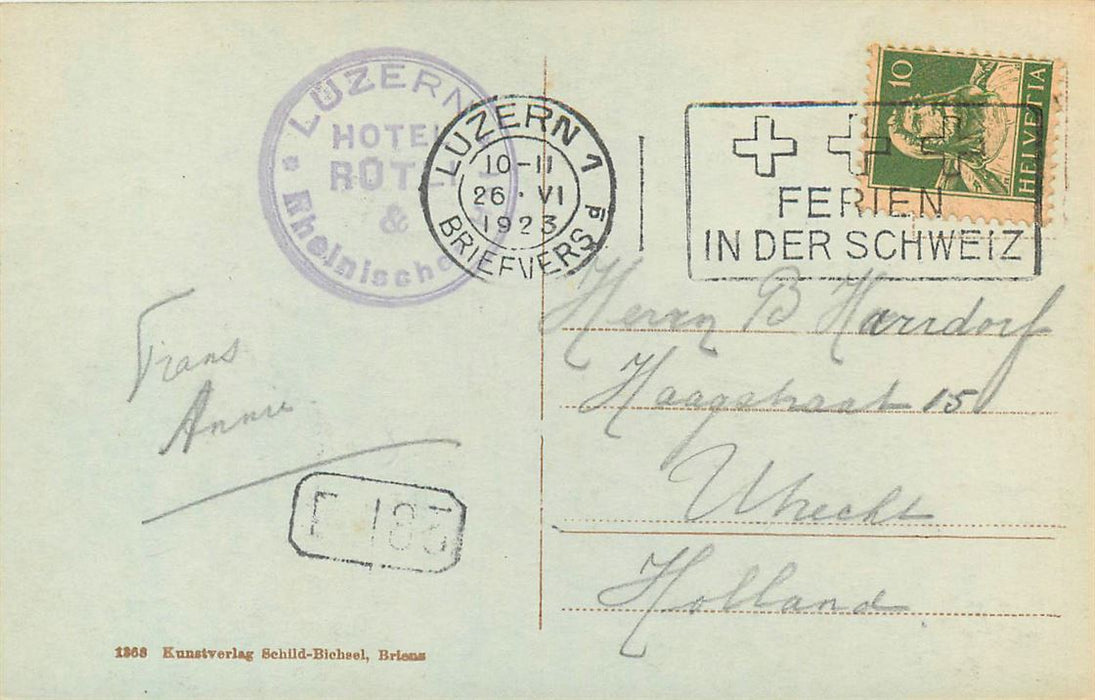 LUZERN
HOTEL
RÜTLI
&
Rheinische
LUZERN 1
10-11
26. VI
1923
BRIEFVERS
10
HELVETIA
FERIEN
IN DER SCHWEIZ
Herrn B Harrdorf
Haagstraat 15
Utrecht
Holland
Frans
Annie
F 183
1368 Kunstverlag Schild-Bichsel, Brienz